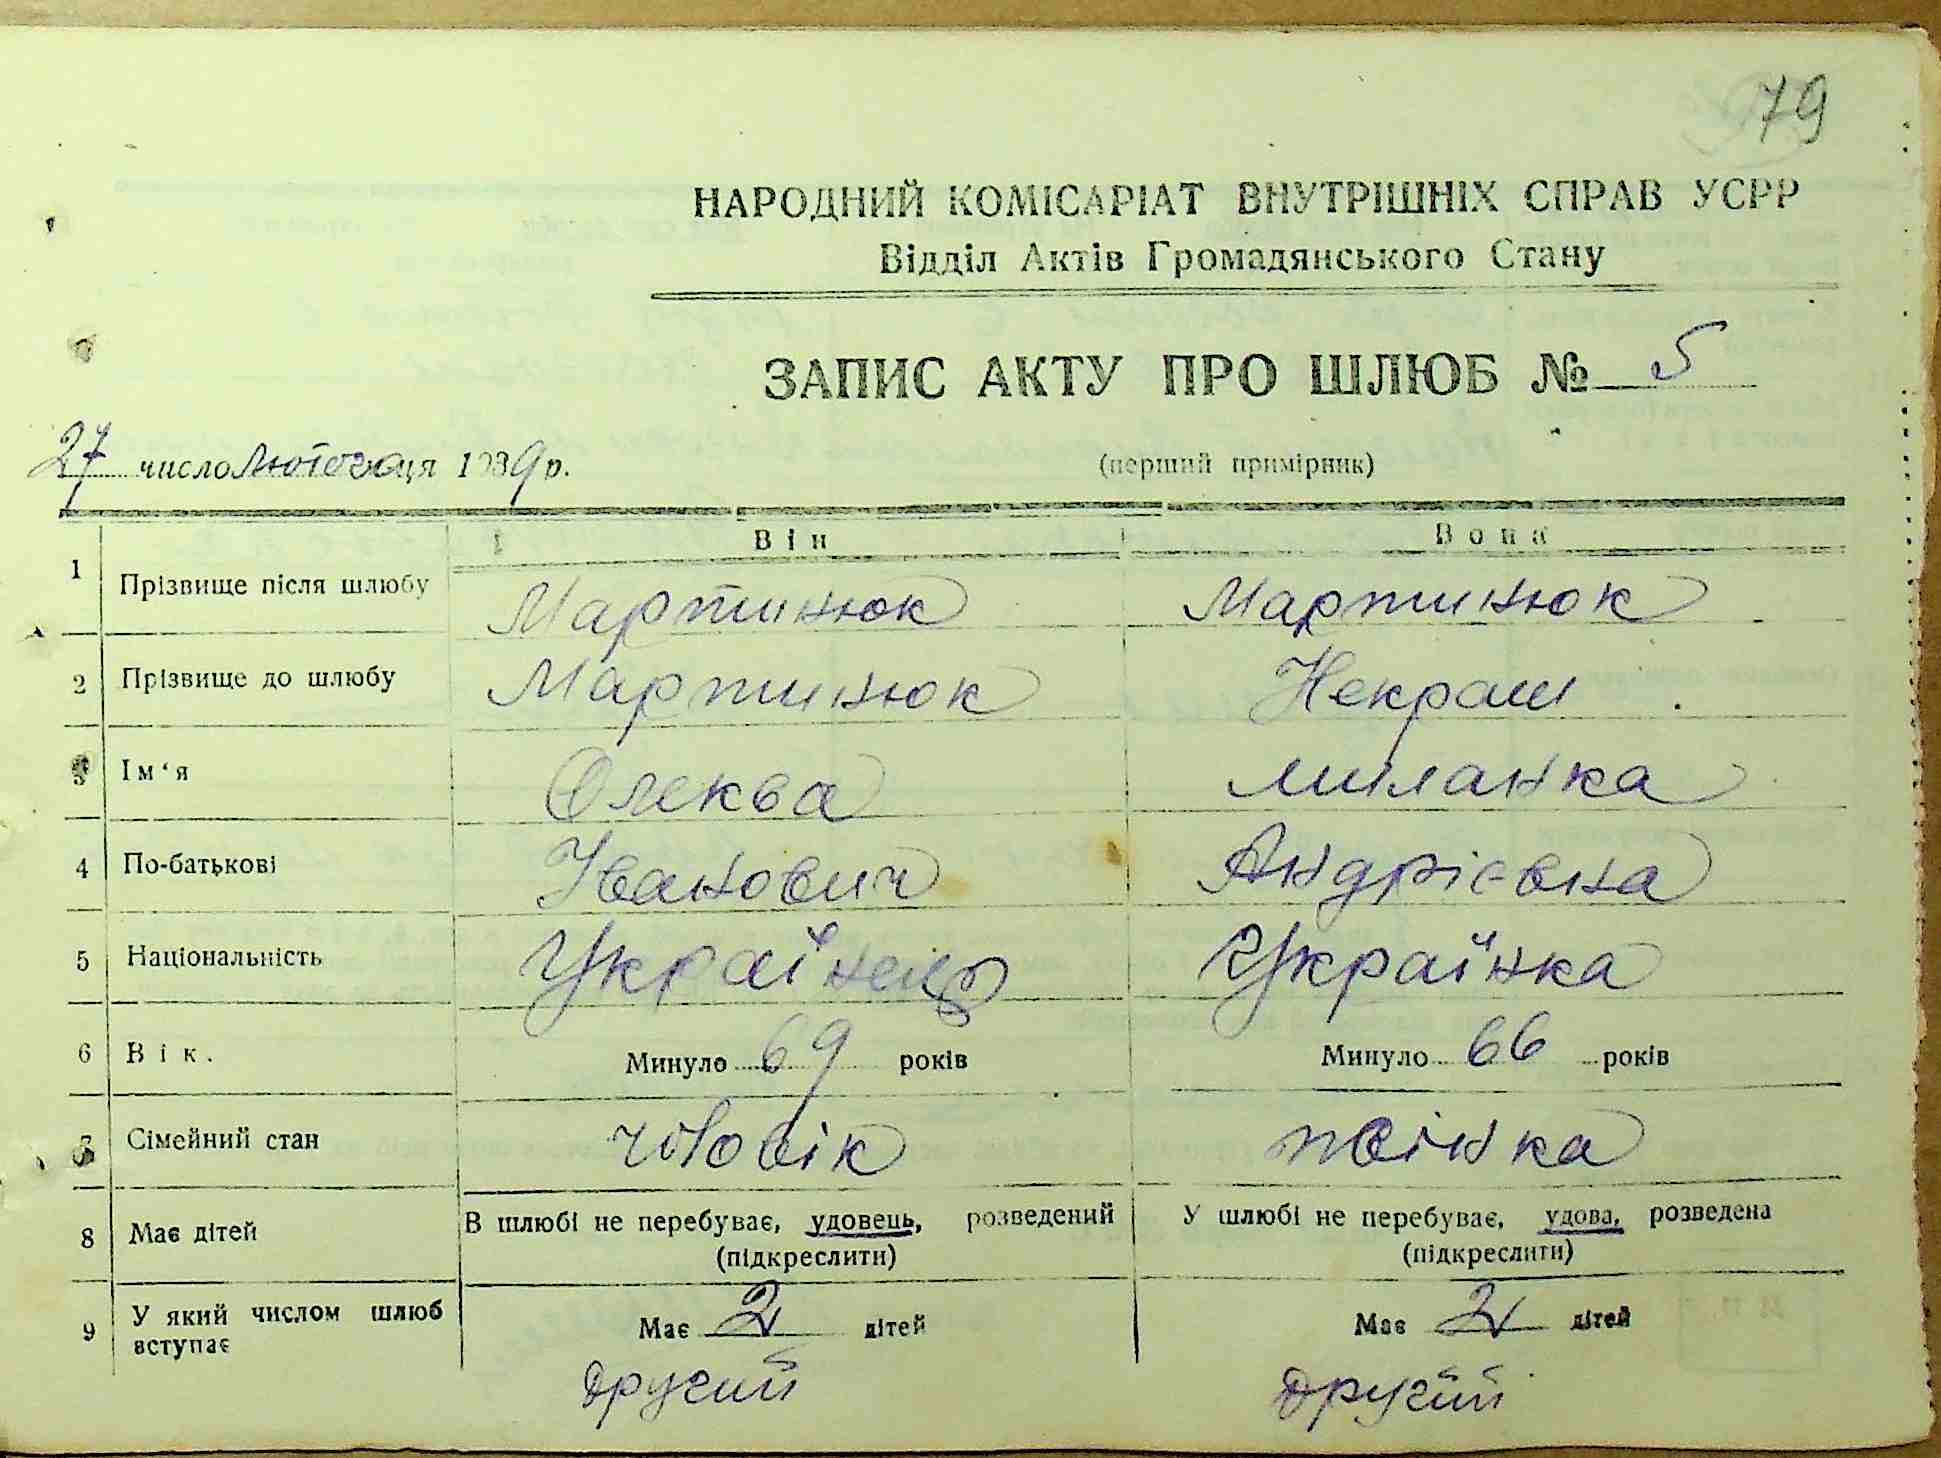 79
НАРОДНИЙ КОМІСАРІАТ ВНУТРІШНІХ СПРАВ УСРР
Відділ Актів Громадянського Стану
ЗАПИС АКТУ ПРО ШЛЮБ № 5
27 число лютого ця 1939 р. (перший примірник)
Він Вона
1 Прізвище після шлюбу Мартинюк Мартинюк
2 Прізвище до шлюбу Мартинюк Некраш
3 Ім'я Олекса Миланка
4 По-батькові Іванович Андрієвна
5 Національність Українець Українка
6 Вік. Минуло 69 років Минуло 66 років
7 Сімейний стан чоловік жінка
8 Має дітей В шлюбі не перебуває, удовець, розведений У шлюбі не перебуває, удова, розведена
(підкреслити) (підкреслити)
9 У який числом шлюб вступає Має 2 дітей Має 2 дітей
другий другий